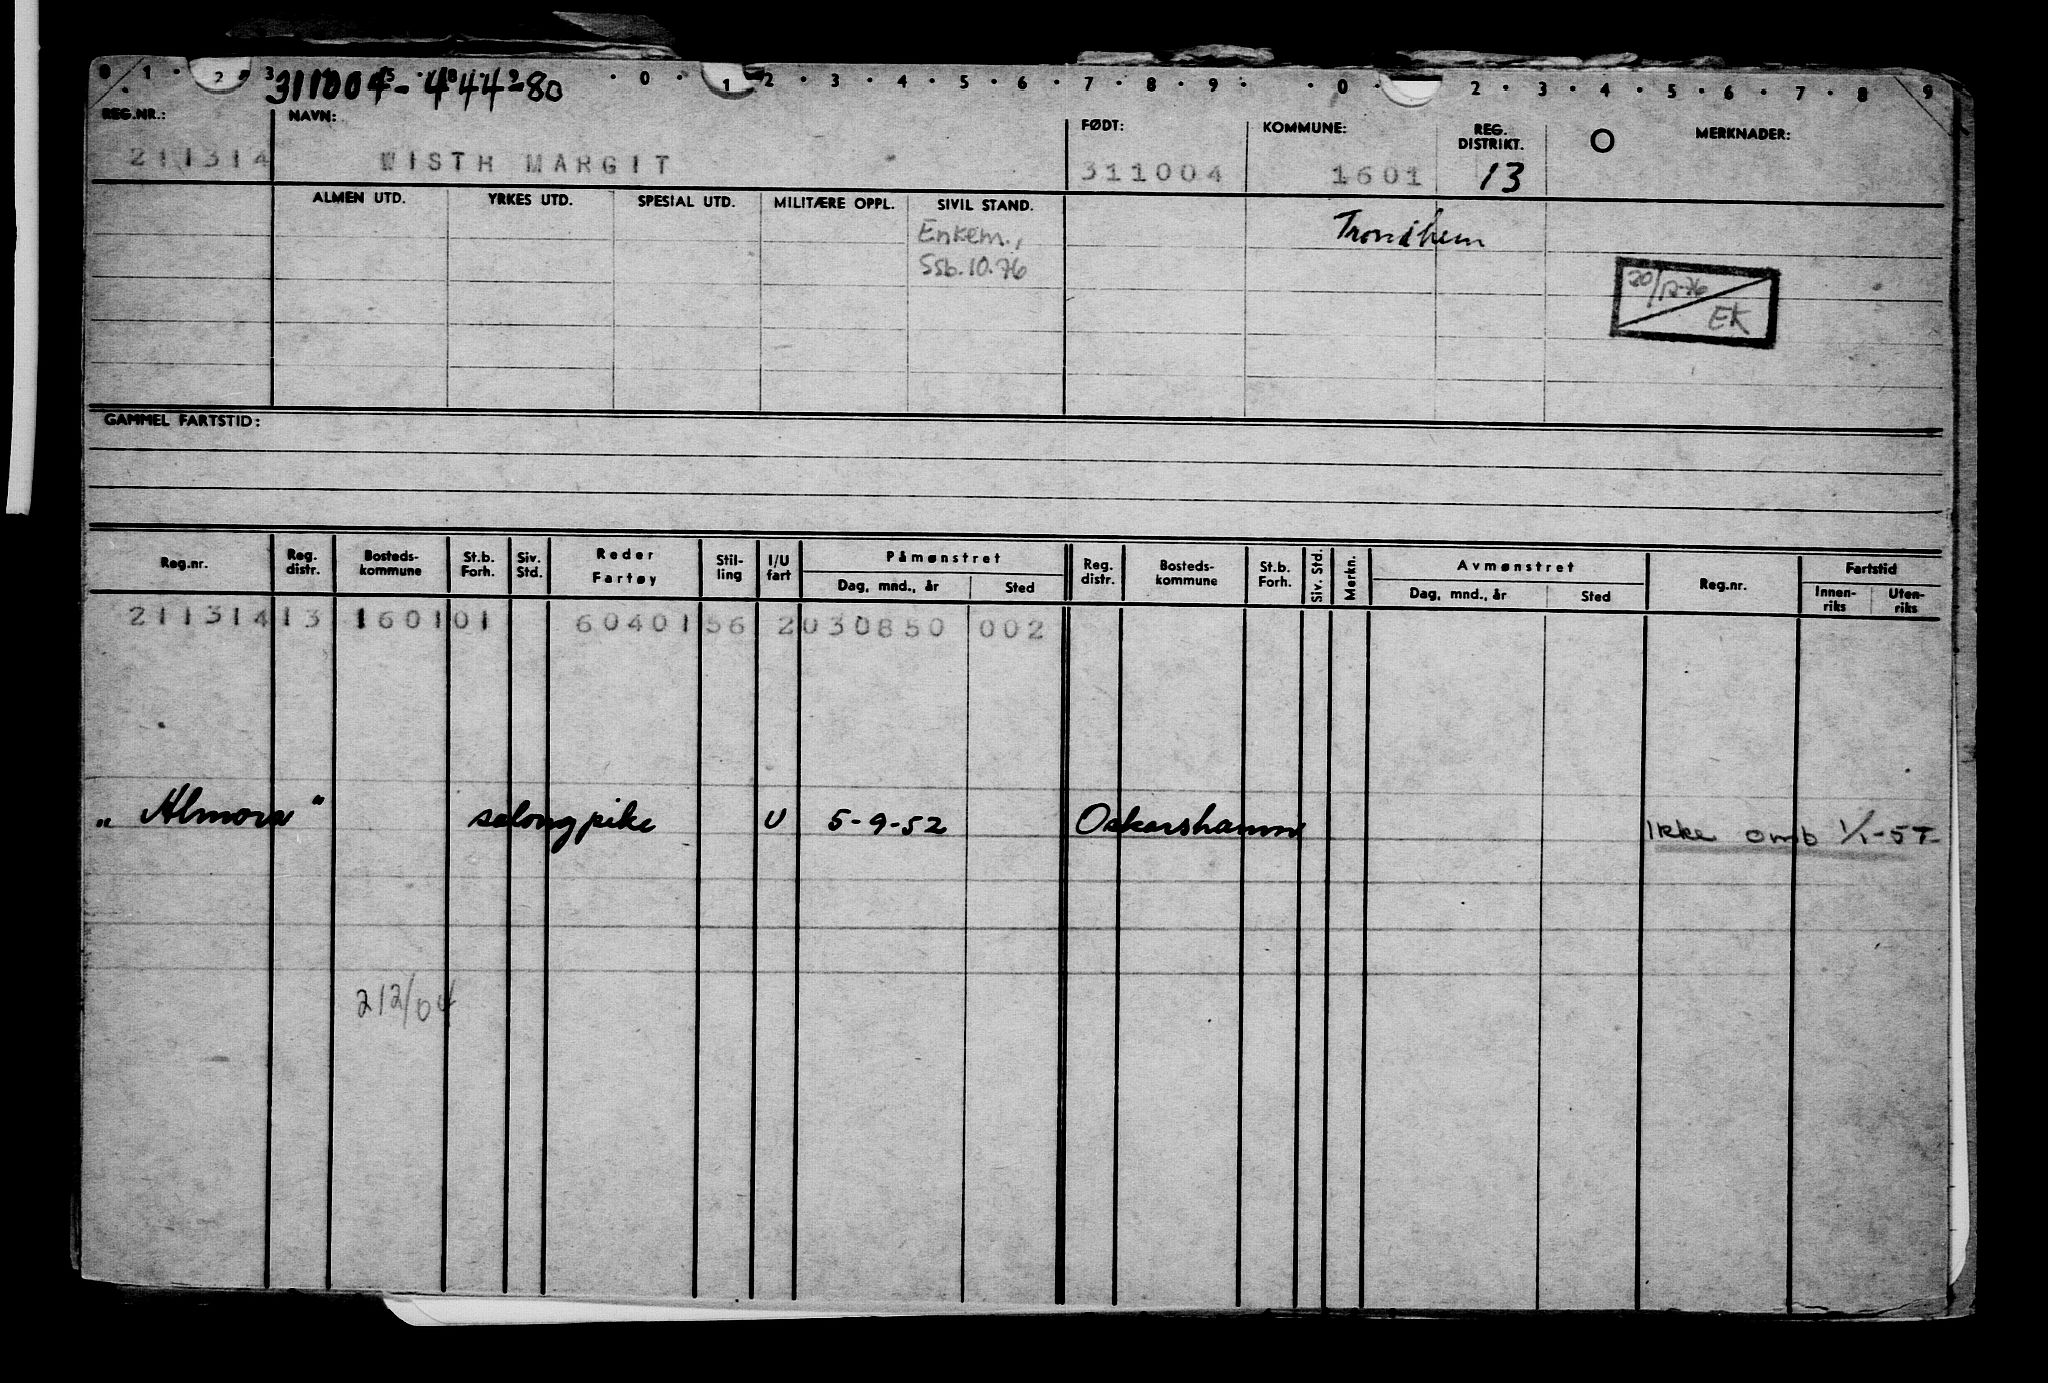 0 1 2 3 4 5 6 7 8 9 0 1 2 3 4 5 6 7 8 9 0 1 2 3 4 5 6 7 8 9
311004-44480
REG.NR.: NAVN: FØDT: KOMMUNE: REG. DISTRIKT. O MERKNADER:
211314 WISTH MARGIT 311004 1601 13
ALMEN UTD. YRKES UTD. SPESIAL UTD. MILITÆRE OPPL. SIVIL STAND.
Enkem., Trondhem
Ssb.10.76
20/12-76
EK
GAMMEL FARTSTID:
Reg.nr. Reg. distr. Bosteds-kommune St.b. Forh. Siv. Std. Reder Fartøy Stil-ling I/U fart Påmønstret Dag, mnd., år Sted Reg. distr. Bosteds-kommune St.b. Forh. Siv. Std. Merkn. Avmønstret Dag, mnd., år Sted Reg.nr. Fartstid Innen-riks Uten-riks
211314 13 1601 01 60401 56 2 030850 002
„ Almora " salongpike U 5-9-52 Oskarshamn Ikke omb 1/1-57
212/04